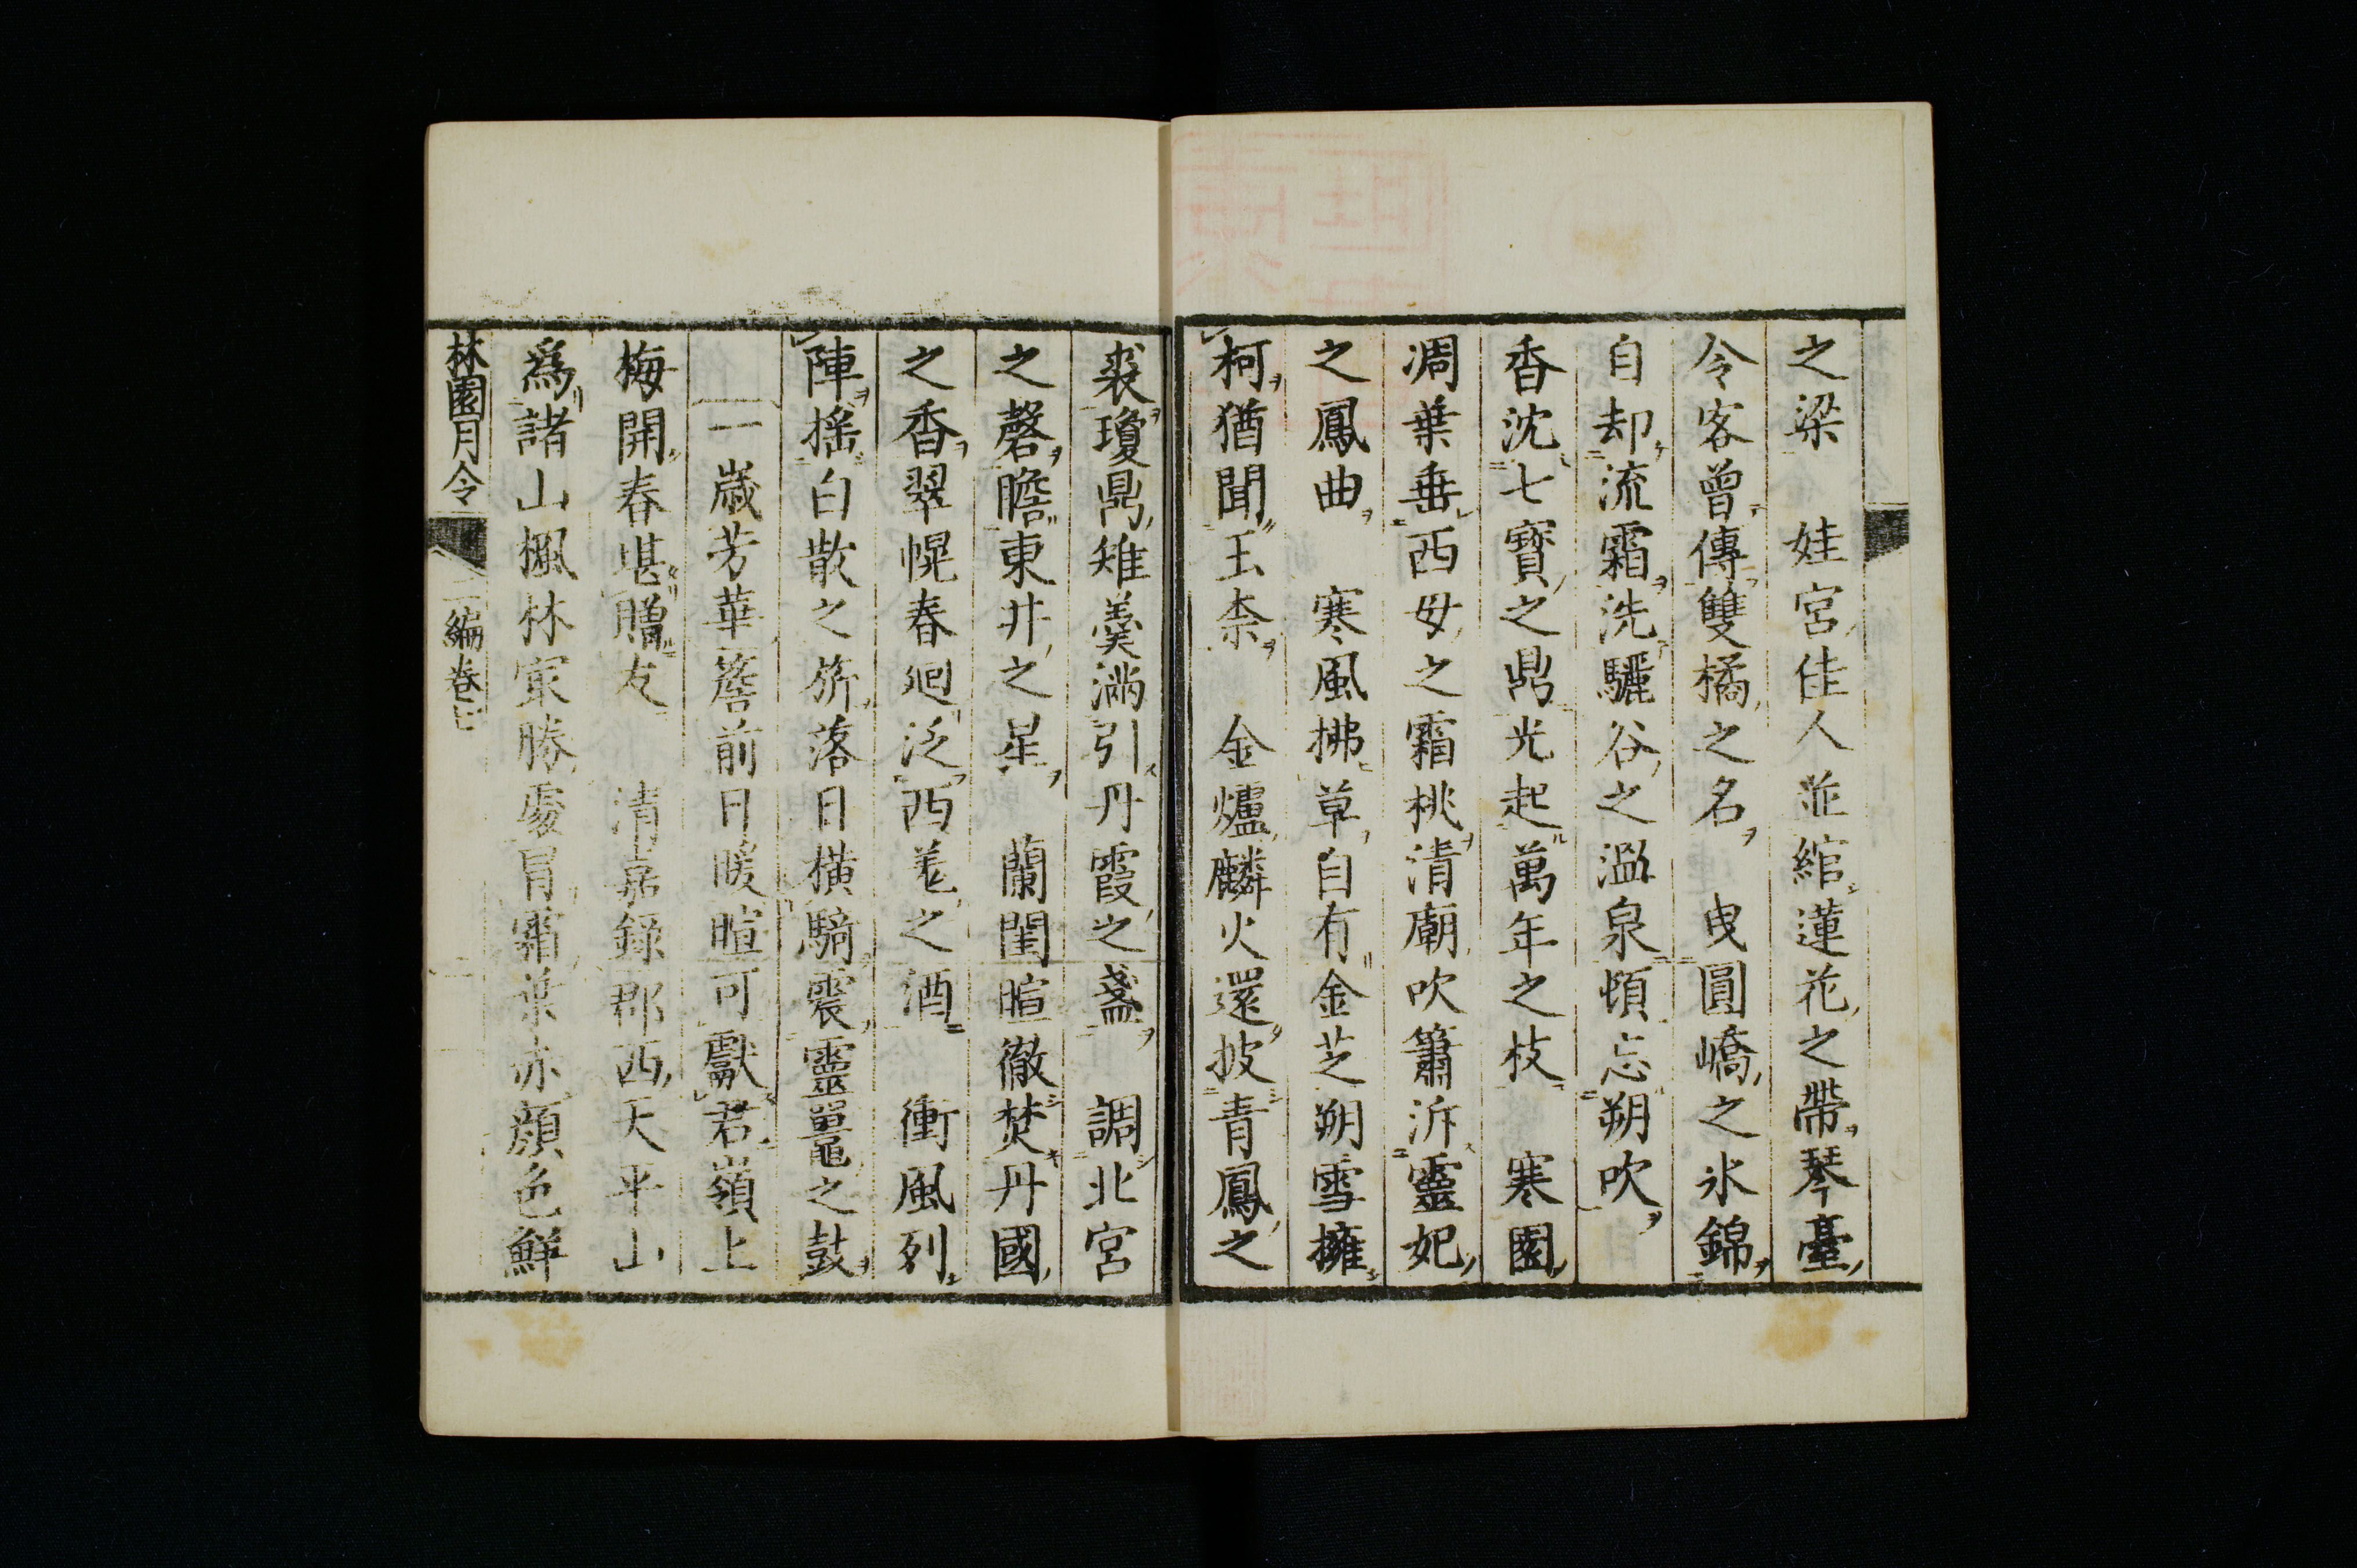 之梁　娃宮佳人並綰蓮花之帶琴臺
令客曾傳雙橘之名　曳圓嶠之氷錦
自却流霜洗驪谷之溫泉頓忘朔吹
香沈七寶之鼎光起萬年之枝　寒園
凋葉垂西母之霜桃清廟吹簫泝靈妃
之鳳曲　寒風拂草自有金芝朔雪擁
柯猶聞玉柰　金爐麟火還披青鳳之
裘瓊鼎雉羹滿引丹霞之盞　調北宮
之磬瞻東井之星　蘭閨暄徹焚丹國
之香翠幌春廻泛西羌之酒　衝風列
陣搖白散之旂落日橫騎震靈鼉之鼓
一歲芳華簷前日暖暄可獻君嶺上
梅開春堪贈友　清嘉錄郡西天平山
爲諸山楓林冣勝處冐霜葉赤顔色鮮
林園月令　二編卷